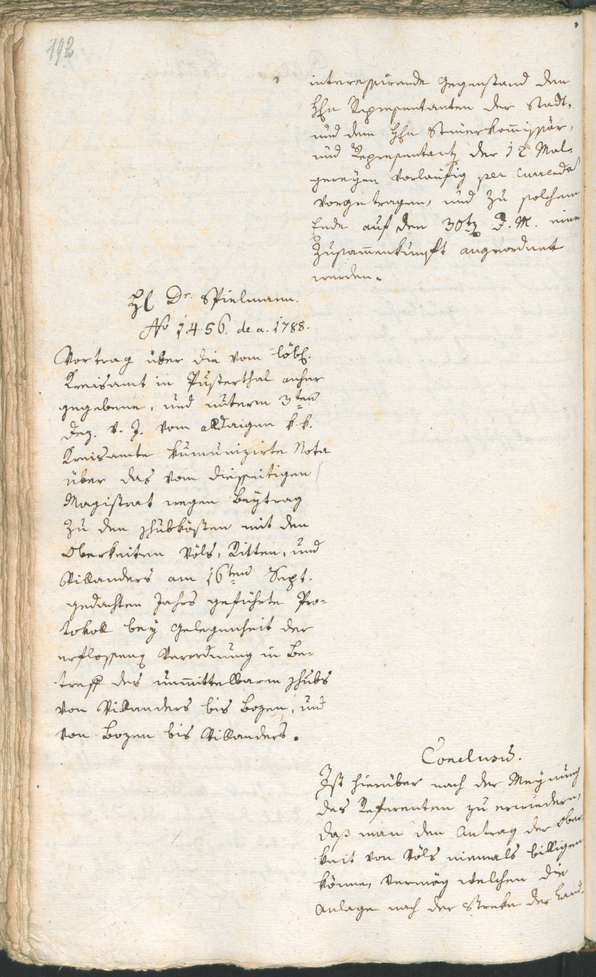 192
interessirende Gegenstand den
Hhn Representanten der Stadt,
und dem Hhn Steuerkommissär,
und Representantz der 12 Mal-
greyen vorläufig per Currenda
vorgetragen, und zu solchem
Ende auf den 30tn d. M. eine
Zusammenkunft angeordnet
werden.
H Dr. Spielmann.
No 1456. de a. 1788.
Vortrag über die vom löbl.
Kreisamt in Pusterthal anher
gegebene, und unterm 3ten
Dez. v. J. vom alldaigen k. k.
Kreisamte kumunizirte Nota
über das vom diesseitigen
Magistrat wegen Beytrag
zu den Schubkösten mit den
Oberkeiten Völs, Ritten, und
Villanders am 16ten Sept.
gedachten Jahrs geführte Pro-
tokoll bey Gelegenheit der
erflossenen Verordnung in Be-
treff des unmittelbarn Schubs
von Villanders bis Bozen, und
von Bozen bis Villanders.
Conclusum.
Ist hierüber nach der Meynung
des Referenten zu erwiedern,
daß man den Antrag der Ober-
keit von Völs niemals billigen
könne, vermög welchem die
Anlage nach der Streke der Land-